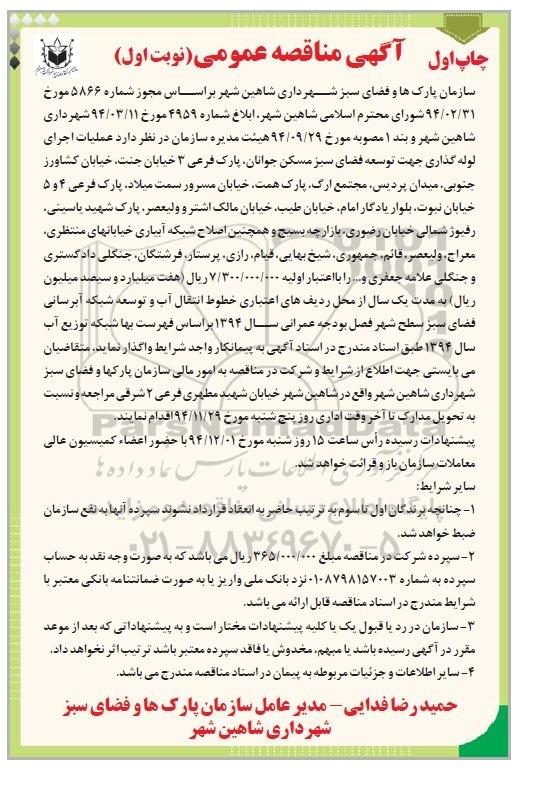 چاپ اول
آگهی مناقصه عمومی (نوبت اول)
سازمان پارک ها و فضای سبز شهرداری شاهین شهر براساس مجوز شماره ۵۸۶۶ مورخ
۹۴/۰۲/۳۱ شورای محترم اسلامی شاهین شهر، ابلاغ شماره ۴۹۵۹ مورخ ۹۴/۰۳/۱۱ شهرداری
شاهین شهر و بند ۱ مصوبه مورخ ۹۴/۰۹/۲۹ هیئت مدیره سازمان در نظر دارد عملیات اجرای
لوله گذاری جهت توسعه فضای سبز مسکن جوانان، پارک فرعی ۳ خیابان جنت، خیابان کشاورز
جنوبی، میدان پردیس، مجتمع ارگ، پارک همت، خیابان مسرور سمت میلاد، پارک فرعی ۴ و ۵
خیابان نبوت، بلوار یادگار امام، خیابان طیب، خیابان مالک اشتر و ولیعصر، پارک شهید یاسینی،
رفیوژ شمالی خیابان رضوری، بازارچه بسیج و همچنین اصلاح شبکه آبیاری خیابانهای منتظری،
معراج، ولیعصر، قائم، جمهوری، شیخ بهایی، قیام، رازی، پرستار، فرشتگان، جنگلی دادگستری
و جنگلی علامه جعفری و... را با اعتبار اولیه ۷/۳۰۰/۰۰۰/۰۰۰ ریال (هفت میلیارد و سیصد میلیون
ریال) به مدت یک سال از محل ردیف های اعتباری خطوط انتقال آب و توسعه شبکه آبرسانی
فضای سبز سطح شهر فصل بودجه عمرانی سال ۱۳۹۴ براساس فهرست بها شبکه توزیع آب
سال ۱۳۹۴ طبق اسناد مندرج در اسناد آگهی به پیمانکار واجد شرایط واگذار نماید. متقاضیان
می بایستی جهت اطلاع از شرایط و شرکت در مناقصه به امور مالی سازمان پارکها و فضای سبز
شهرداری شاهین شهر واقع در شاهین شهر خیابان شهید مطهری فرعی ۲ شرقی مراجعه و نسبت
به تحویل مدارک تا آخر وقت اداری روز پنج شنبه مورخ ۹۴/۱۱/۲۹ اقدام نمایند.
پیشنهادات رسیده رأس ساعت ۱۵ روز شنبه مورخ ۹۴/۱۲/۰۱ با حضور اعضاء کمیسیون عالی
معاملات سازمان باز و قرائت خواهد شد.
سایر شرایط:
۱- چنانچه برندگان اول تا سوم به ترتیب حاضر به انعقاد قرارداد نشوند سپرده آنها به نفع سازمان
ضبط خواهد شد.
۲- سپرده شرکت در مناقصه مبلغ ۳۶۵/۰۰۰/۰۰۰ ریال می باشد که به صورت وجه نقد به حساب
سپرده به شماره ۰۱۰۸۷۹۸۱۵۷۰۰۳ نزد بانک ملی واریز یا به صورت ضمانتنامه بانکی معتبر با
شرایط مندرج در اسناد مناقصه قابل ارائه می باشد.
۳- سازمان در رد یا قبول یک یا کلیه پیشنهادات مختار است و به پیشنهاداتی که بعد از موعد
مقرر در آگهی رسیده باشد یا مبهم، مخدوش یا فاقد سپرده معتبر باشد ترتیب اثر نخواهد داد.
۴- سایر اطلاعات و جزئیات مربوطه به پیمان در اسناد مناقصه مندرج می باشد.
حمید رضا فدایی – مدیر عامل سازمان پارک ها و فضای سبز
شهرداری شاهین شهر
ParsNamadData
مرکز فرآوری اطلاعات پارس نماد داده ها
پایگاه اطلاع رسانی مناقصه و مزایده
۰۲۱-۸۸۳۴۹۶۷۰-۵